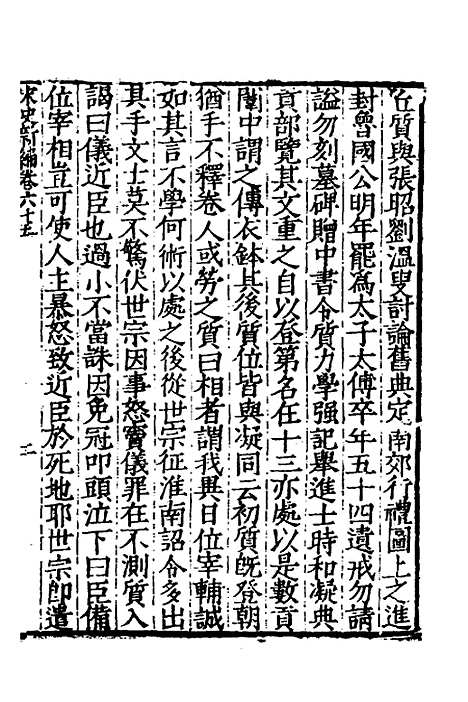 丘質與張昭劉溫叟討論舊典定南郊行禮圖上之進
封魯國公明年罷爲太子太傅卒年五十四遺戒勿請
謚勿刻墓碑贈中書令質力學强記舉進士時和凝典
貢部覽其文重之自以登第名在十三亦處以是數貢
闈中謂之傳衣鉢其後質位皆與凝同云初質既登朝
猶手不釋卷人或勞之質曰相者謂我異日位宰輔誠
如其言不學何術以處之後從世宗征淮南詔令多出
其手文士莫不驚伏世宗因事怒竇儀罪在不測質入
謁曰儀近臣也過小不當誅因免冠叩頭泣下曰臣備
位宰相豈可使人主暴怒致近臣於死地耶世宗卽遣
宋史新編卷六十五 二